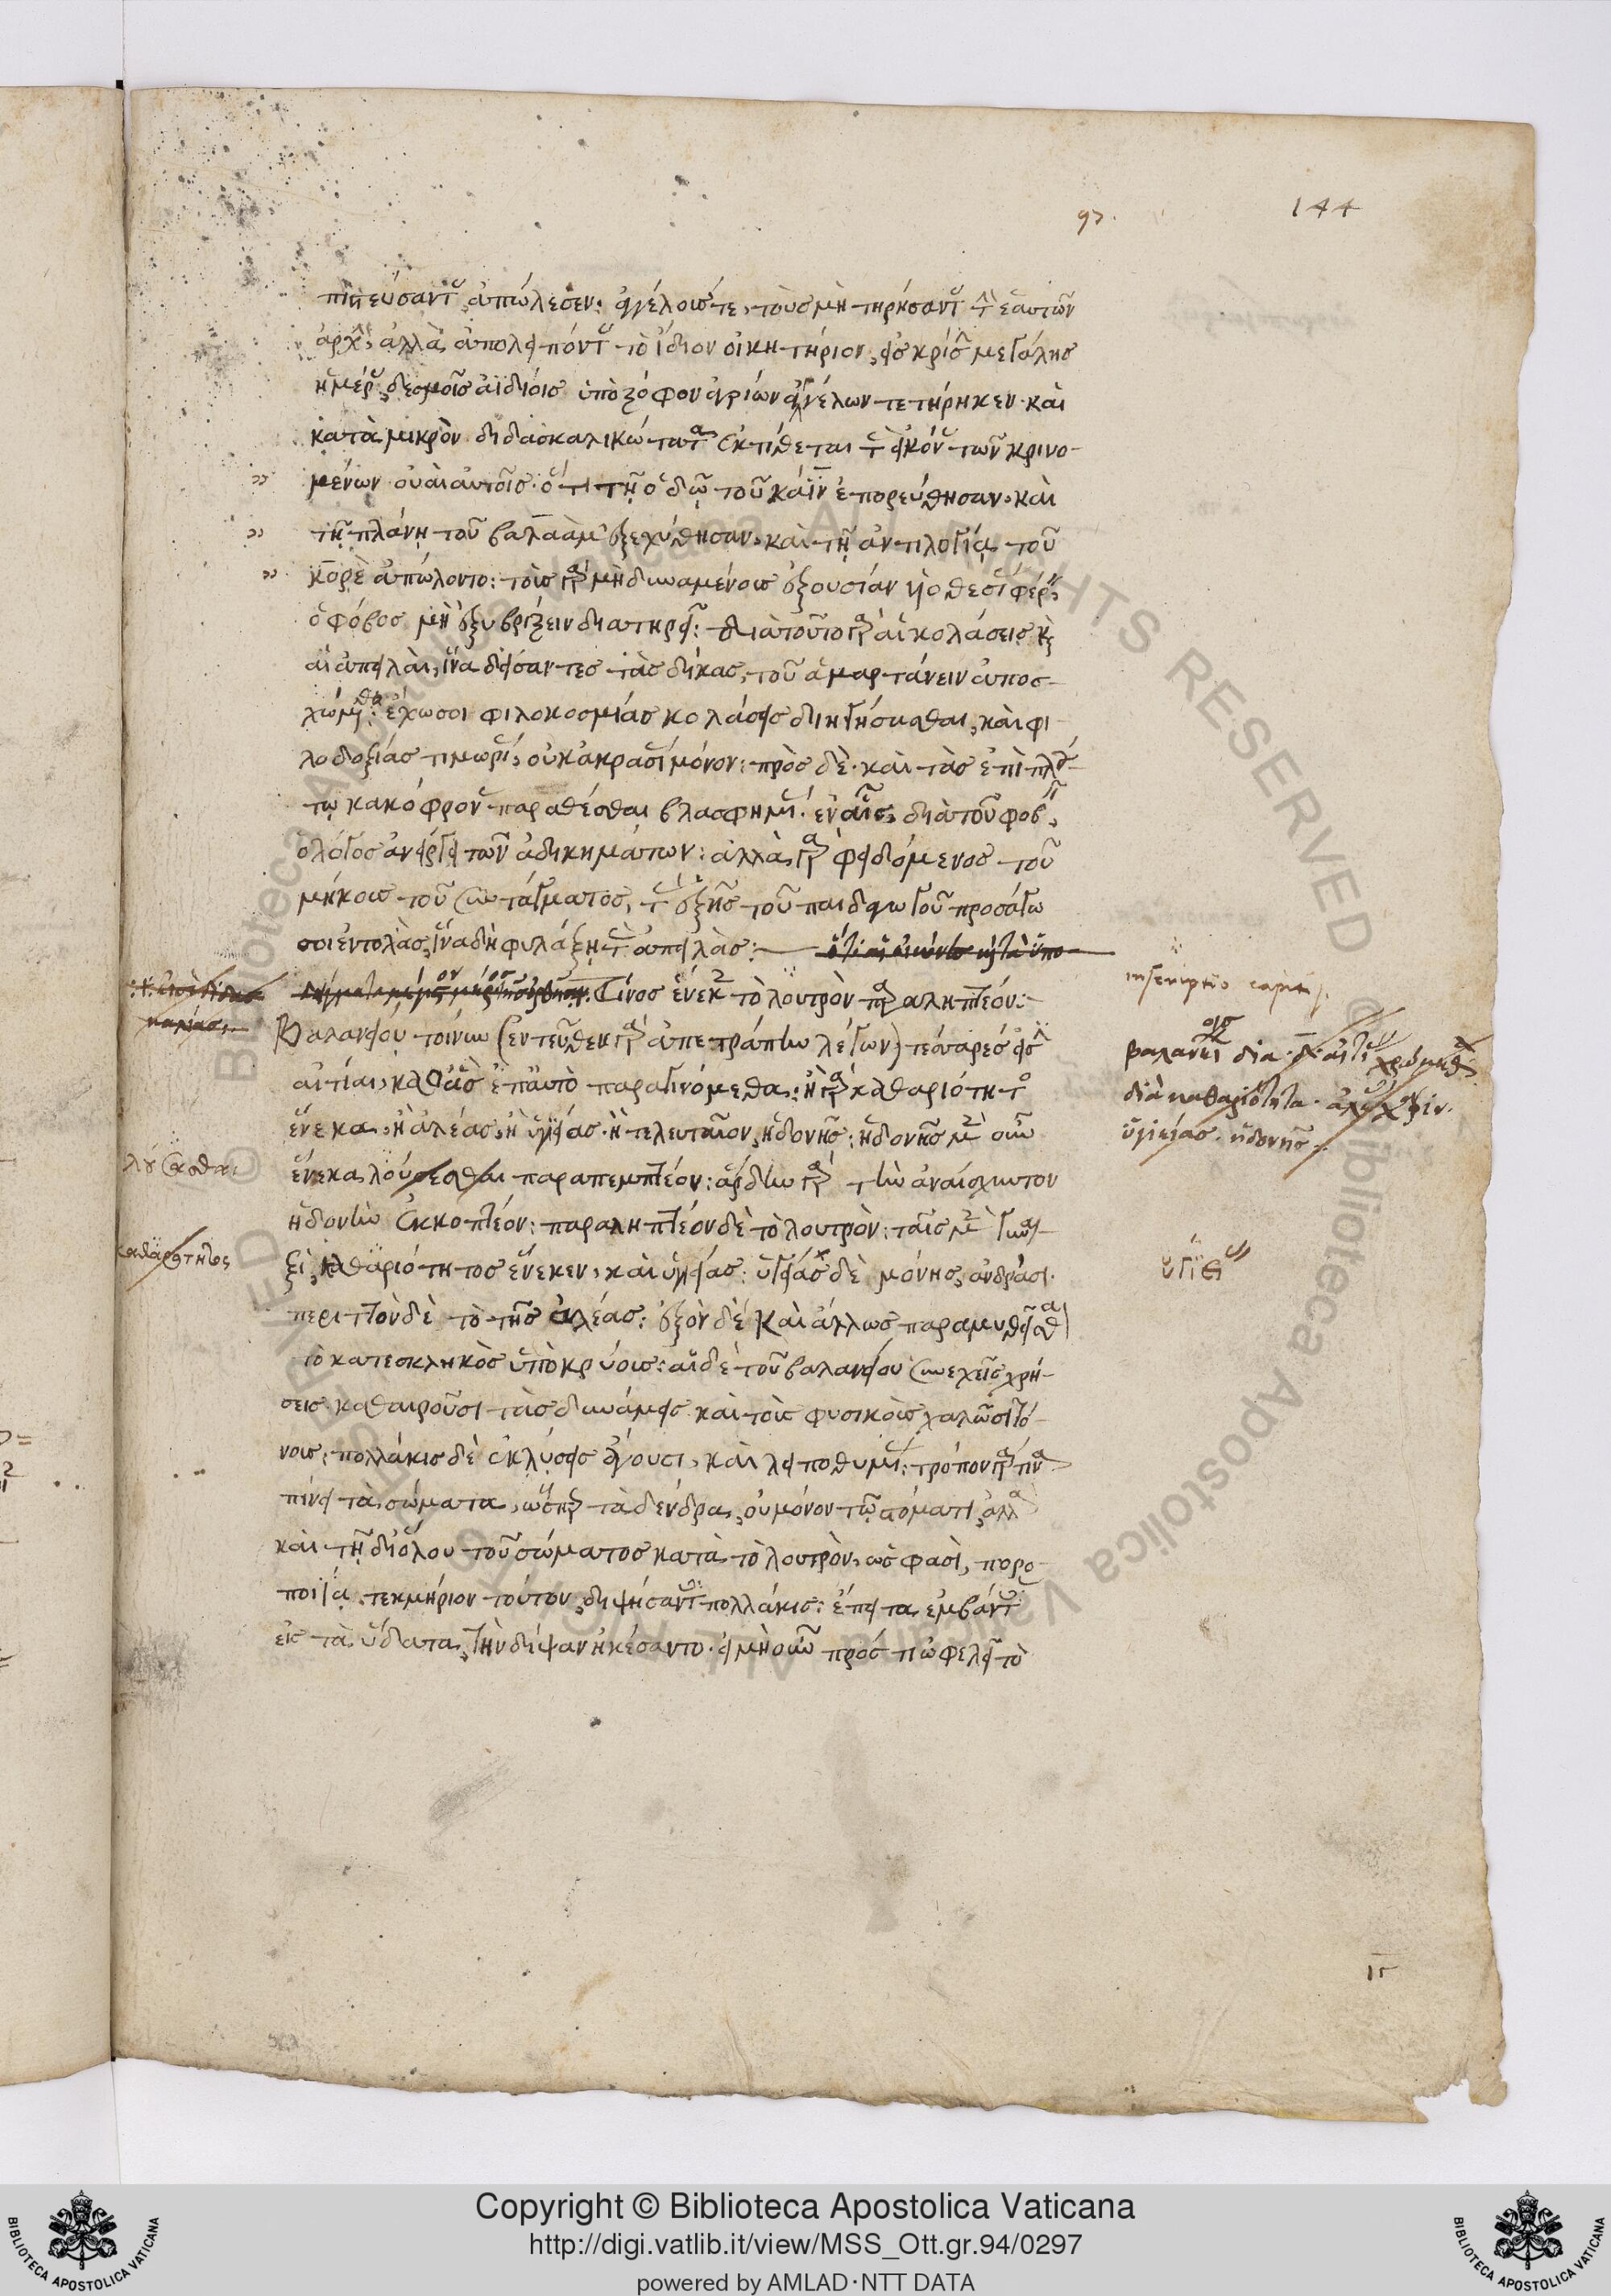 97.
144
πιστεύσαντας ἀπώλεσεν· ἀγγέλους τε, τοὺς μὴ τηρήσαντας τὴν ἑαυτῶν
ἀρχὴν, ἀλλὰ ἀπολειπόντας τὸ ἴδιον οἰκητήριον, εἰς κρίσιν μεγάλης
ἡμέρας, δεσμοῖς ἀϊδίοις ὑπὸ ζόφον ἀγρίων ἀγγέλων τετήρηκεν· καὶ
κατὰ μικρὸν διδασκαλικώτατα ἐκτίθεται τὰς εἰκόνας τῶν κρινο-
μένων· οὐαὶ αὐτοῖς· ὅτι τῇ ὁδῷ τοῦ κάϊν ἐπορεύθησαν· καὶ
τῇ πλάνῃ τοῦ βαλαὰμ ἐξεχύθησαν, καὶ τῇ ἀντιλογίᾳ τοῦ
κορὲ ἀπώλοντο: τοῖς γὰρ μὴ δυναμένοις ἐξουσίαν υἱοθεσίας φέρειν,
ὁ φόβος μὴ ἐξυβρίζειν διατηρεῖ: διὰ τοῦτο γὰρ αἱ κολάσεις καὶ
αἱ ἀπειλαὶ, ἵνα δείσαντες τὰς δίκας, τοῦ ἁμαρτάνειν ἀποσ-
χώμεθα: ἔχω σοι φιλοκοσμίας κολάσεις διηγήσασθαι, καὶ φι-
λοδοξίας τιμωρίας, οὐκ ἀκρασίας μόνον: πρὸς δὲ καὶ τὰς ἐπὶ πλού-
τῳ κακόφρονας παραθέσθαι βλασφημίας· ἐν αἷς, διὰ τοῦ φόβου,
ὁ λόγος ἀνείργει τῶν ἀδικημάτων: ἀλλὰ γὰρ φειδόμενος τοῦ
μήκους τοῦ συντάγματος, τὰς ἑξῆς τοῦ παιδαγωγοῦ προσάγω
σοι ἐντολὰς, ἵνα δὴ φυλάξῃ τὰς ἀπειλάς:
inscriptio capitis.
Τίνος ἕνεκεν τὸ λουτρὸν παραληπτέον:
Βαλανείου τοίνυν (ἐντεῦθεν γὰρ ἀπετράπην λέγων) τέσσαρές εἰσιν
αἰτίαι, καθ' ἃς ἐπ' αὐτὸ παραγινόμεθα: ἢ γὰρ καθαριότητος
ἕνεκα, ἢ ἀλέας, ἢ ὑγείας, ἢ τελευταῖον, ἡδονῆς: ἡδονῆς μὲν οὖν
ἕνεκα λούσεσθαι παραπεμπτέον: ἄρδην γὰρ τὴν ἀναίσχυντον
ἡδονὴν ἐκκοπτέον: παραληπτέον δὲ τὸ λουτρὸν: ταῖς μὲν γυναι-
ξὶ, καθαριότητος ἕνεκεν, καὶ ὑγείας: ὑγείας δὲ μόνης, ἀνδράσι·
περιττὸν δὲ τὸ τῆς ἀλέας: ἐξὸν δὲ καὶ ἄλλως παραμυθεῖσθαι
τὸ κατεσκληκὸς ὑπὸ κρύους: αἱ δὲ τοῦ βαλανείου συνεχεῖς χρή-
σεις καθαιροῦσι τὰς δυνάμεις καὶ τοὺς φυσικοὺς χαλῶσι τό-
νους: πολλάκις δὲ ἐκλύσεις ἄγουσι, καὶ λειποθυμίας: τρόπον γὰρ τινὰ
πίνει τὰ σώματα, ὥσπερ τὰ δένδρα, οὐ μόνον τῷ στόματι, ἀλλὰ
καὶ τῇ δι' ὅλου τοῦ σώματος κατὰ τὸ λουτρὸν, ὥς φασὶ, πορο-
ποιΐᾳ. τεκμήριον τούτου, διψήσαντες πολλάκις: ἔπειτα ἐμβάντες
εἰς τὰ ὕδατα, τὴν δίψαν ἠκέσαντο· εἰ μὴ οὖν πρός τι ὠφελεῖ τὸ
λούσασθαι
καθαρότητος
βαλανείοις διὰ δ αἰτίας χρώμεθα
διὰ καθαριότητα· ἀλέαν
ὑγιείας· ἡδονῆς·
ὑγίειας
Copyright © Biblioteca Apostolica Vaticana
http://digi.vatlib.it/view/MSS_Ott.gr.94/0297
powered by AMLAD·NTT DATA